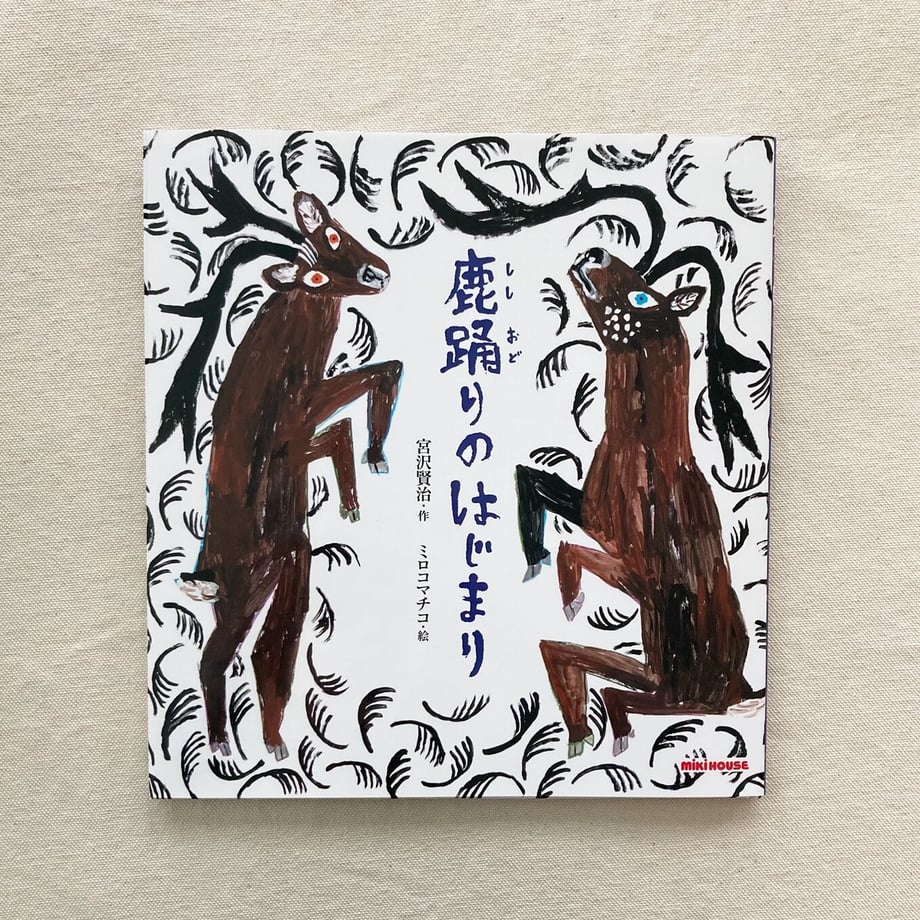 鹿踊りのはじまり
しし おど
宮沢賢治・作
ミロコマチコ・絵
mikiHOUSE